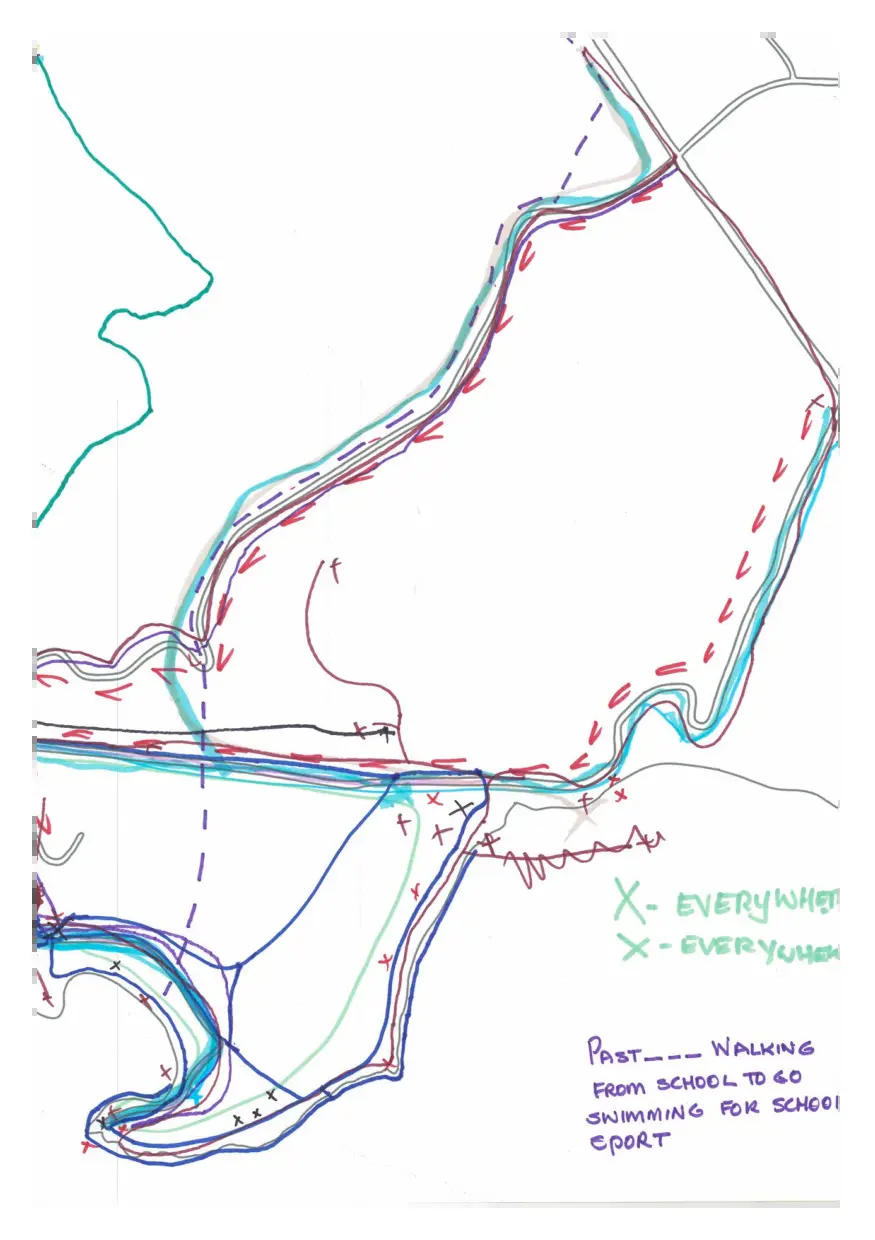 X - EVERYWHE
X - EVERYWHE
PAST --- WALKING
FROM SCHOOL TO GO
SWIMMING FOR SCHOOL
EPORT